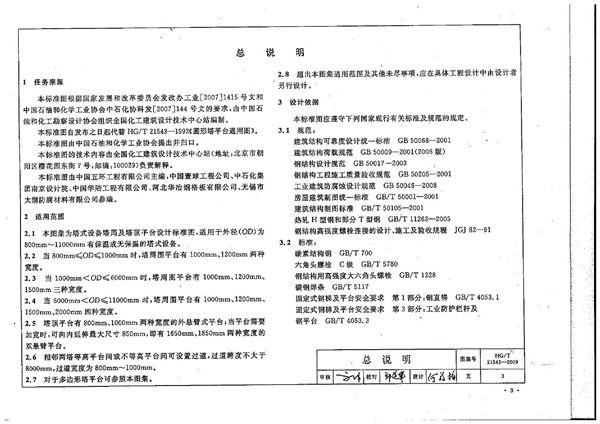 总 说 明
1 任务来源
本标准图根据国家发展和改革委员会发改办工业[2007]1415号文和
中国石油和化学工业协会中石化协科发[2007]144号文的要求,由中国石
油和化工勘察设计协会组织全国化工建筑设计技术中心站编制。
本标准图自发布之日起代替 HG/T 21543—1992《圆形塔平台通用图》。
本标准图由中国石油和化学工业协会提出并归口。
本标准图的技术内容由全国化工建筑设计技术中心站(地址:北京市朝
阳区樱花园东街7号,邮编:100029)负责解释。
本标准图由中国五环工程有限公司主编,中国寰球工程公司、中石化集
团南京设计院、中国华陆工程有限公司、河北华冶钢格板有限公司、无锡市
太湖防腐材料有限公司参编。
2 适用范围
2.1 本图集为塔式设备塔周及塔顶平台设计标准图,适用于外径(OD)为
800mm~11000mm有保温或无保温的塔式设备。
2.2 当800mm≤OD≤1000mm时,塔周围平台有1000mm、1200mm两种
宽度。
2.3 当1000mm<OD≤6000mm时,塔周围平台有1000mm、1200mm、
1500mm三种宽度。
2.4 当6000mm<OD≤11000mm时,塔周围平台有1000mm、1200mm、
1500mm、2000mm四种宽度。
2.5 塔顶平台有800mm、1000mm两种宽度的外悬臂式平台;当平台需要
加宽时,可向内延伸最大尺寸850mm,即有1650mm、1850mm两种宽度的
双悬臂平台。
2.6 相邻两塔等高平台间或不等高平台间可设置过道,过道跨度不大于
8000mm,过道宽度为800mm~1000mm。
2.7 对于多边形塔平台可参照本图集。
2.8 超出本图集适用范围及其他未尽事项,应在具体工程设计中由设计者
另行设计。
3 设计依据
本标准图应遵守下列国家现行有关标准及规范的规定。
3.1 规范:
建筑结构可靠度设计统一标准 GB 50068—2001
建筑结构荷载规范 GB 50009—2001(2006版)
钢结构设计规范 GB 50017—2003
钢结构工程施工质量验收规范 GB 50205—2001
工业建筑防腐蚀设计规范 GB 50046—2008
房屋建筑制图统一标准 GB/T 50001—2001
建筑结构制图标准 GB/T 50105—2001
热轧H型钢和部分T型钢 GB/T 11263—2005
钢结构高强度螺栓连接的设计、施工及验收规程 JGJ 82—91
3.2 标准:
碳素结构钢 GB/T 700
六角头螺栓 C级 GB/T 5780
钢结构用高强度大六角头螺栓 GB/T 1228
碳钢焊条 GB/T 5117
固定式钢梯及平台安全要求 第1部分:钢直梯 GB/T 4053.1
固定式钢梯及平台安全要求 第3部分:工业防护栏杆及
钢平台 GB/T 4053.3
总 说 明 图集号 HG/T 21543—2009
审核 校对 设计 页 3
· 3 ·